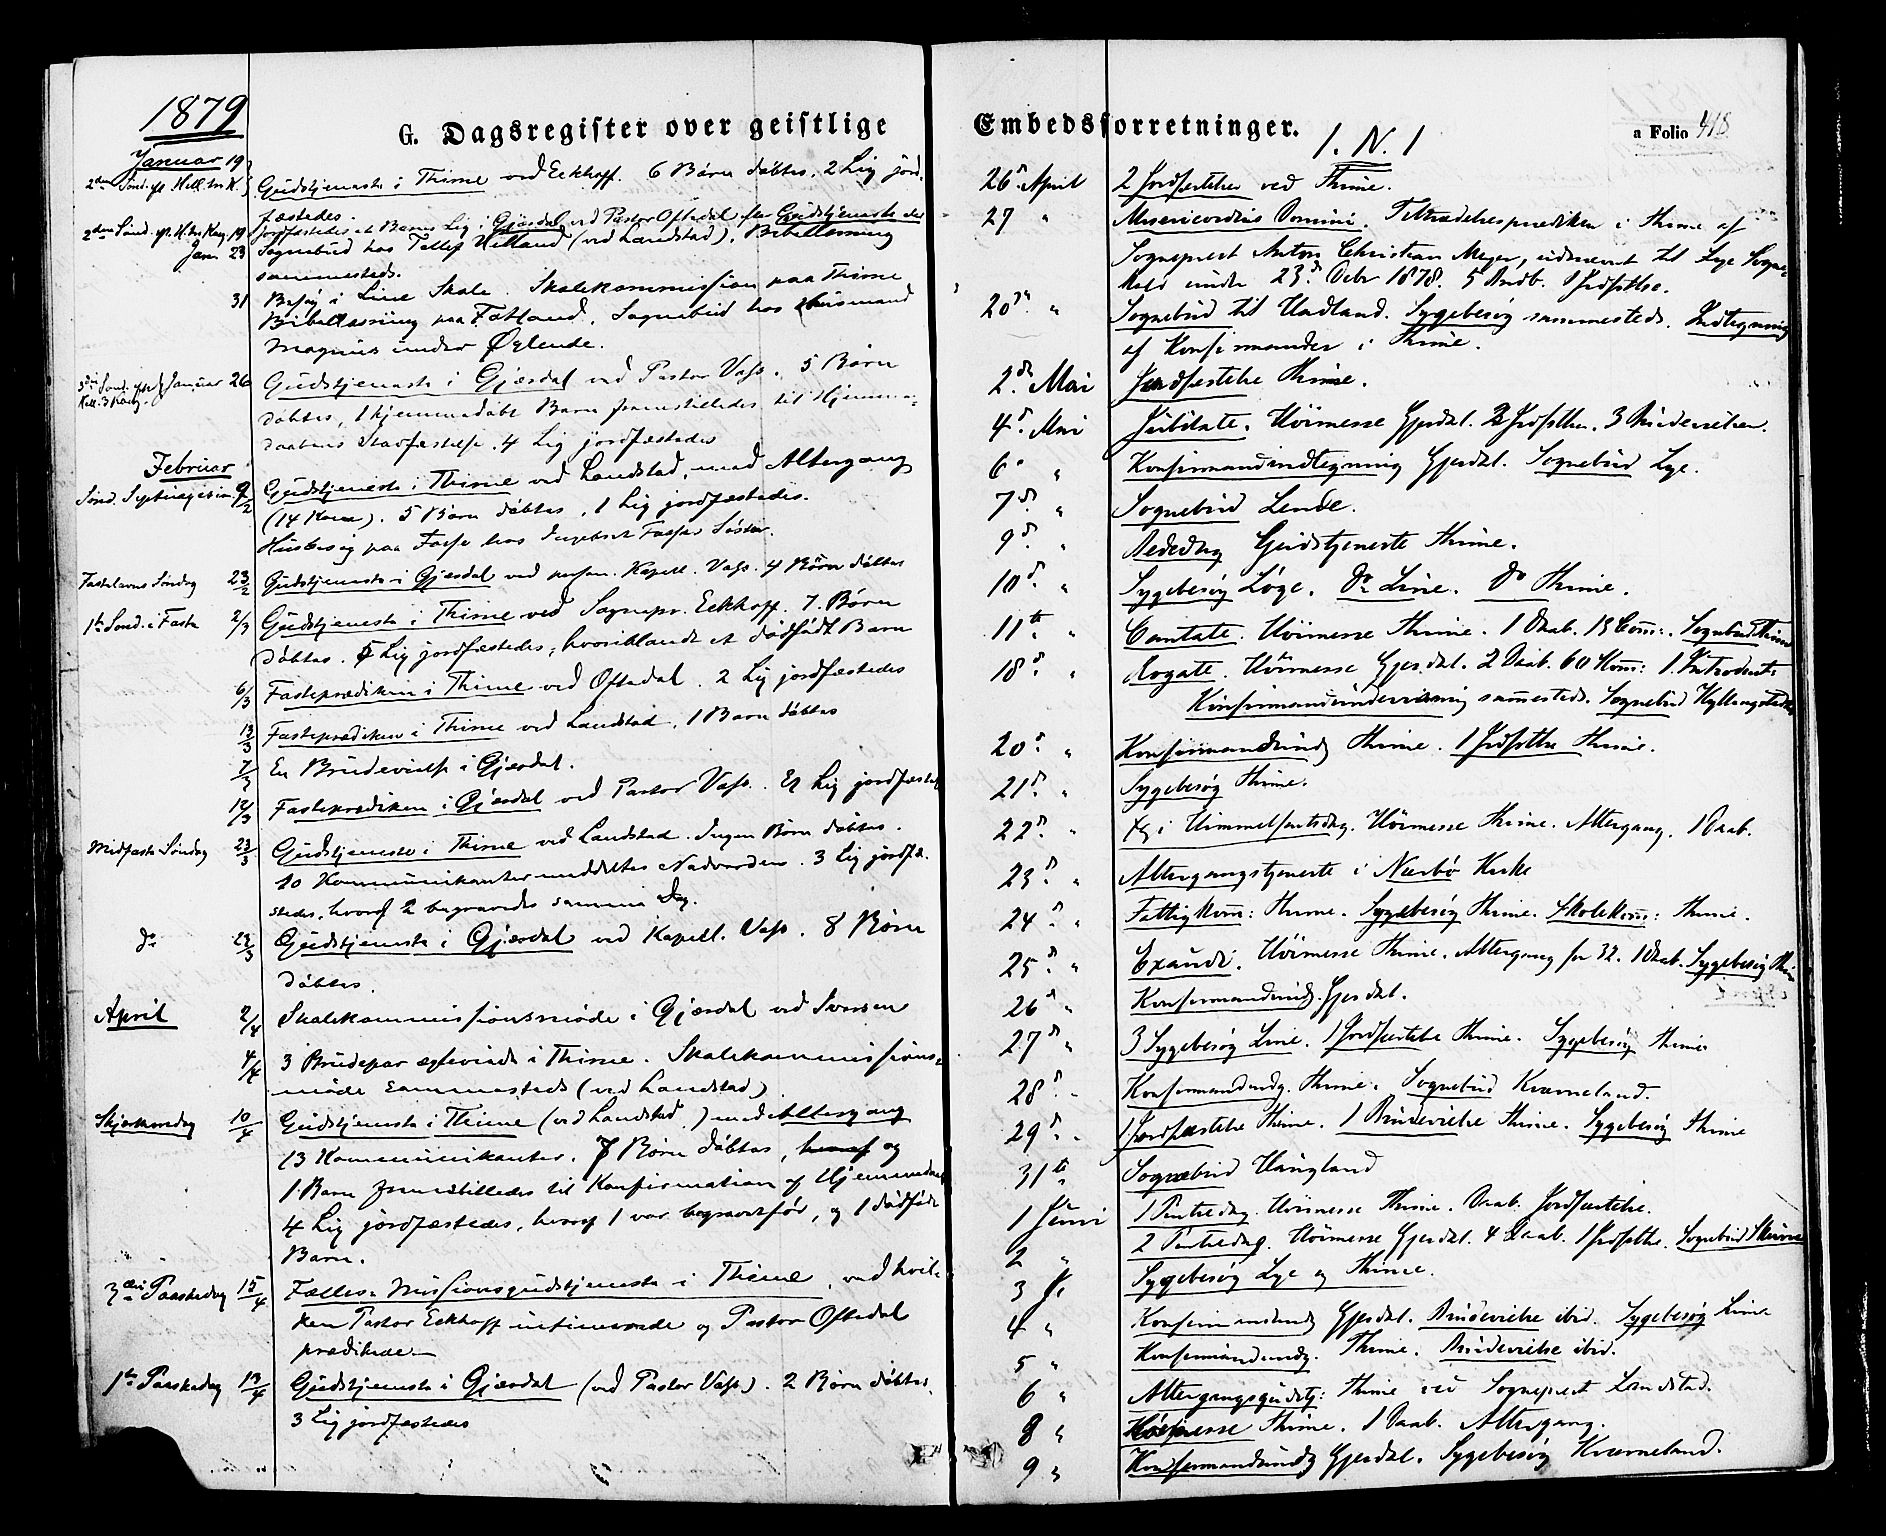 1879
G. Dagsregister over geistlige
Januar 19
2den Sønd. ef. Hell. tre K.
Gudstjeneste i Thime ved Eckhoff. 6 Børn døbtes, 2 Lig jord-
fæstedes.
2den Sønd. ef. H. tre Kong. 19
Jordfæstedes et Barns Lig i Gjæsdal ved Pastor Oftedal efter Gudstjeneste der
Jan. 23
Sognebud hos Tollef Hetland (ved Landstad). Bibellæsning
sammesteds.
31
Besøg i Line Skole. Skolekommission paa Thime
Bibellæsning paa Fotland. Sognebud hos Husmand
Magnus under Øglende.
3die Sønd. efter Hell. 3 Kong. Januar 26
Gudstjeneste i Gjæsdal ved Pastor Vass. 5 Børn
døbtes, 1 hjemmedøbt Barn fremstilledes til Hjemme-
daabens Stadfæstelse. 4 Lig jordfæstedes
Februar
Sønd. Septuagesima 9/2
Gudstjeneste i Thime ved Landstad, med Altergang
(14 Kom.). 5 Børn døbtes, 1 Lig jordfæstedes.
Husbesøg paa Fosse hos
Fastelavns Søndag 23/2
Gudstjeneste i Gjæsdal ved person. Kapell. Vass. 4 Børn døbtes
1ste Sønd. i Faste 2/3
Gudstjeneste i Thime ved Sognepr. Eckhoff. 7 Børn
døbtes. Lig jordfæstedes, hvoriblandt et dødfødt Barn
6/3
Fasteprædiken i Thime ved Oftedal. 2 Lig jordfæstedes
13/3
Fasteprædiken i Thime ved Landstad, 1 Barn døbtes
7/3
En Brudevielse i Gjæsdal.
14/3
Fasteprædiken i Gjæsdal ved Pastor Vass. Et Lig jordfæstet
Midfaste Søndag 23/3
Gudstjeneste i Thime ved Landstad. Ingen Børn døbtes.
10 Kommunikanter meddeltes Nadverden. 3 Lig jordfæ-
stedes, hvoraf 2 begravedes samme Dag.
do 23/3
Gudstjeneste i Gjæsdal ved Kapell. Vass. 8 Børn
døbtes.
April 2/4
Skolekommissionsmøde i Gjæsdal ved Svensen
4/4
3 Brudepar ægteviede i Thime. Skolekommissions-
møde sammesteds (ved Landstad)
Skjærtorsdag 10/4
Gudstjeneste i Thime (ved Landstad) med Altergang
13 Kommunikanter. 7 Børn døbtes, og
1 Barn fremstilledes til Konfirmation af Hjemmedaab
4 Lig jordfæstedes, hvoraf 1 var begravet før, og 1 dødfødt
Barn.
3die Paaskedag 15/4
Fælles-Missionsgudstjeneste i Thime, ved hvil-
ken Pastor Eckhoff intimerede og Pastor Oftedal
prædikede.
1ste Paaskedag 13/4
Gudstjeneste i Gjæsdal (ved Pastor Vass). 2 Børn døbtes,
3 Lig jordfæstedes
Embedsforretninger.
1. N. 1
a Folio 418
26d April 2 Jordfæstelser ved Thime.
27 " Misericordias Domini. Tiltrædelsesprædiken i Thime af
Sognepræst Anton Christian Meyer, udnævnt til Lye Sogne-
kald under 23d Decbr 1878. 5 Daab. 1 Jrdfstlse.
Sognebud til Undland. Sygebesøg sammesteds. Indtegning
af Konfirmander i Thime.
2d Mai Jordfæstelse Thime.
4d Mai Jubilate. Høimesse Gjesdal. 2 Jrdfstlser. 3 Brudevielser.
6 " Konfirmandindtegning Gjesdal. Sognebud Lye.
7d " Sognebud Lende.
9d " Bededag Gudstjeneste Thime.
10d " Sygebesøg Løge. Do Line. Do Thime.
11te " Cantate. Høimesse Thime. 1 Daab. 13 Com:. Sognebud Thime
18d " Rogate. Høimesse Gjesdal. 2 Daab. 60 Kom: 1 Introduct:
Konfirmandundervisning sammesteds. Sognebud Kyllingstad
20d " Konfirmandund. Thime. 1 Jrdfstlse Thime.
21d " Sygebesøg Thime.
22d " Kr. Himmelfartsdag. Høimesse Thime. Altergang. 1 Daab.
23d " Altergangstjeneste i Nærbø Kirke
24d " Fattigkom: Thime. Sygebesøg Thime. Skolekom: Thime.
25d " Exaudi. Høimesse Thime. Altergang for 32. 1 Daab. Sygebesøg Thime
26d " Konfirmandund. Gjesdal.
27d " 3 Sygebesøg Line. 1 Jordfæstelse Thime. Sygebesøg Thime
28d " Konfirmandundg. Thime. Sognebud Kværneland.
29d " 1 Jordfæstelse Thime. 1 Brudevielse Thime. Sygebesøg Thime
31te " Sognebud Haugland
1 Juni 1 Pintsedag. Høimesse Thime. Daab. Jordfæstelse.
2 " 2 Pintsedag. Høimesse Gjesdal. 4 Daab. 1 Jrdfstlse. Sognebud
3 Sygebesøg Lye og Thime.
4 " Konfirmandundg Gjesdal. Brudevielse ibid. Sygebesøg Line
5 " Konfirmandundg. Thime. Brudevielse ibid.
6 " Altergangsgudstj: Thime ved Sognepræst Landstad.
8 " Høimesse Thime. 1 Daab. Altergang.
9 " Konfirmandundg Gjesdal. Sygebesøg Kværneland.